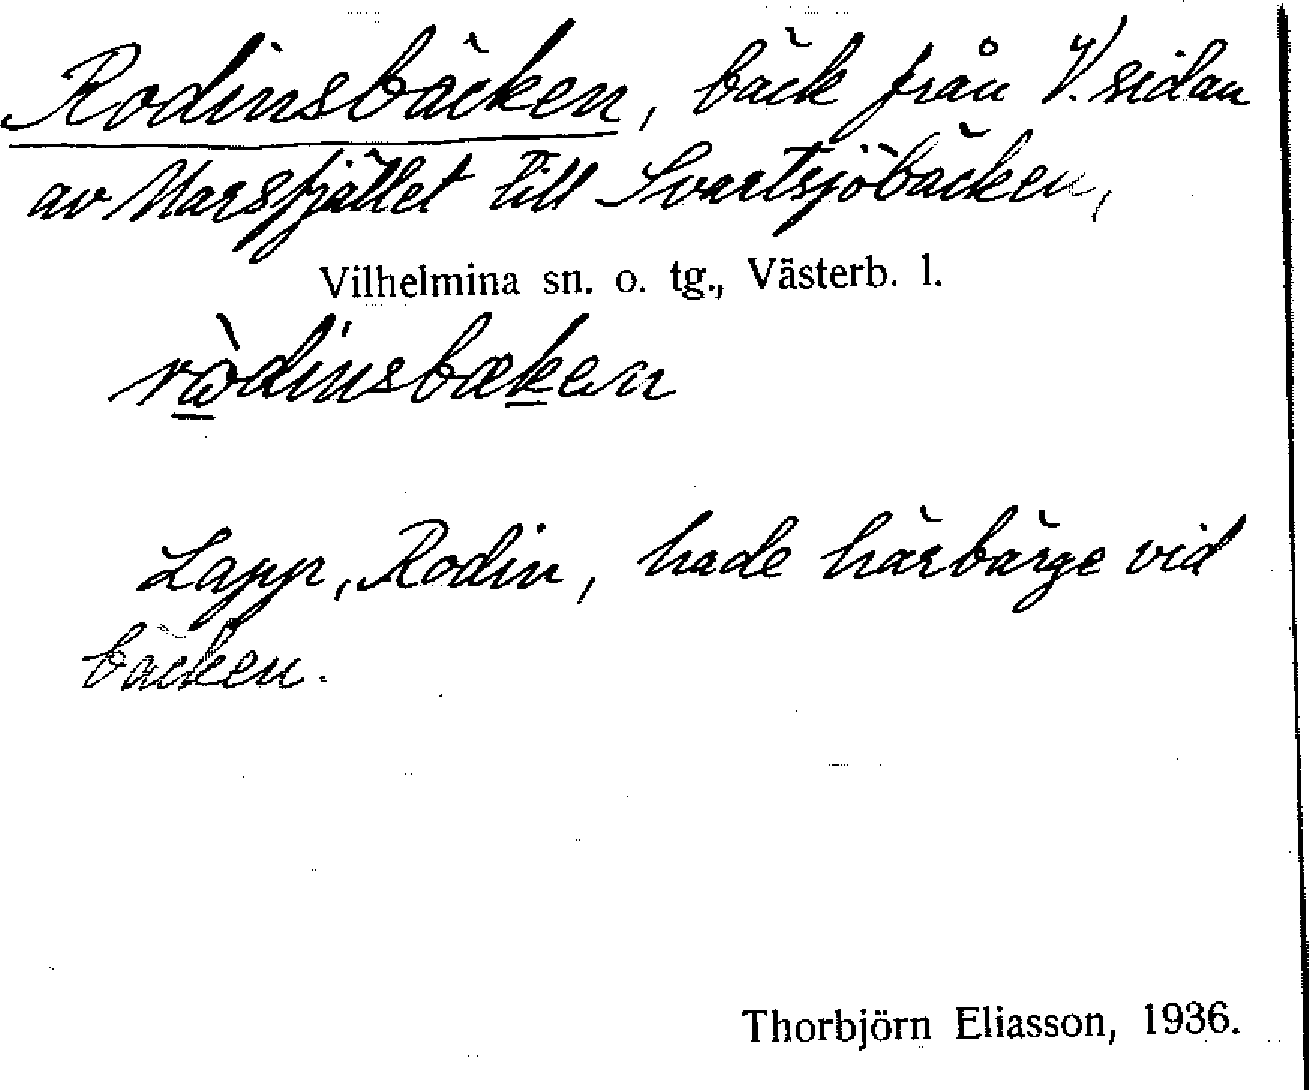 Rodinsbäcken, bäck från V. sidan
av Marsfjället till Svartsjöbäcken,
Vilhelmina sn. o. tg., Västerb. l.
rὼdinsbæken
Lapp, Rodin, hade härbärge vid
bäcken.
Thorbjörn Eliasson, 1936.